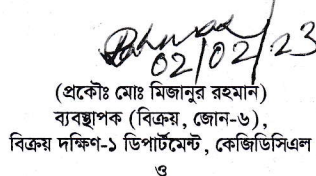 02/02/23
(প্রকৌঃ মোঃ মিজানুর রহমান)
ব্যবস্থাপক (বিক্রয়, জোন-৬),
বিক্রয় দক্ষিণ-১ ডিপার্টমেন্ট, কেজিডিসিএল
ও